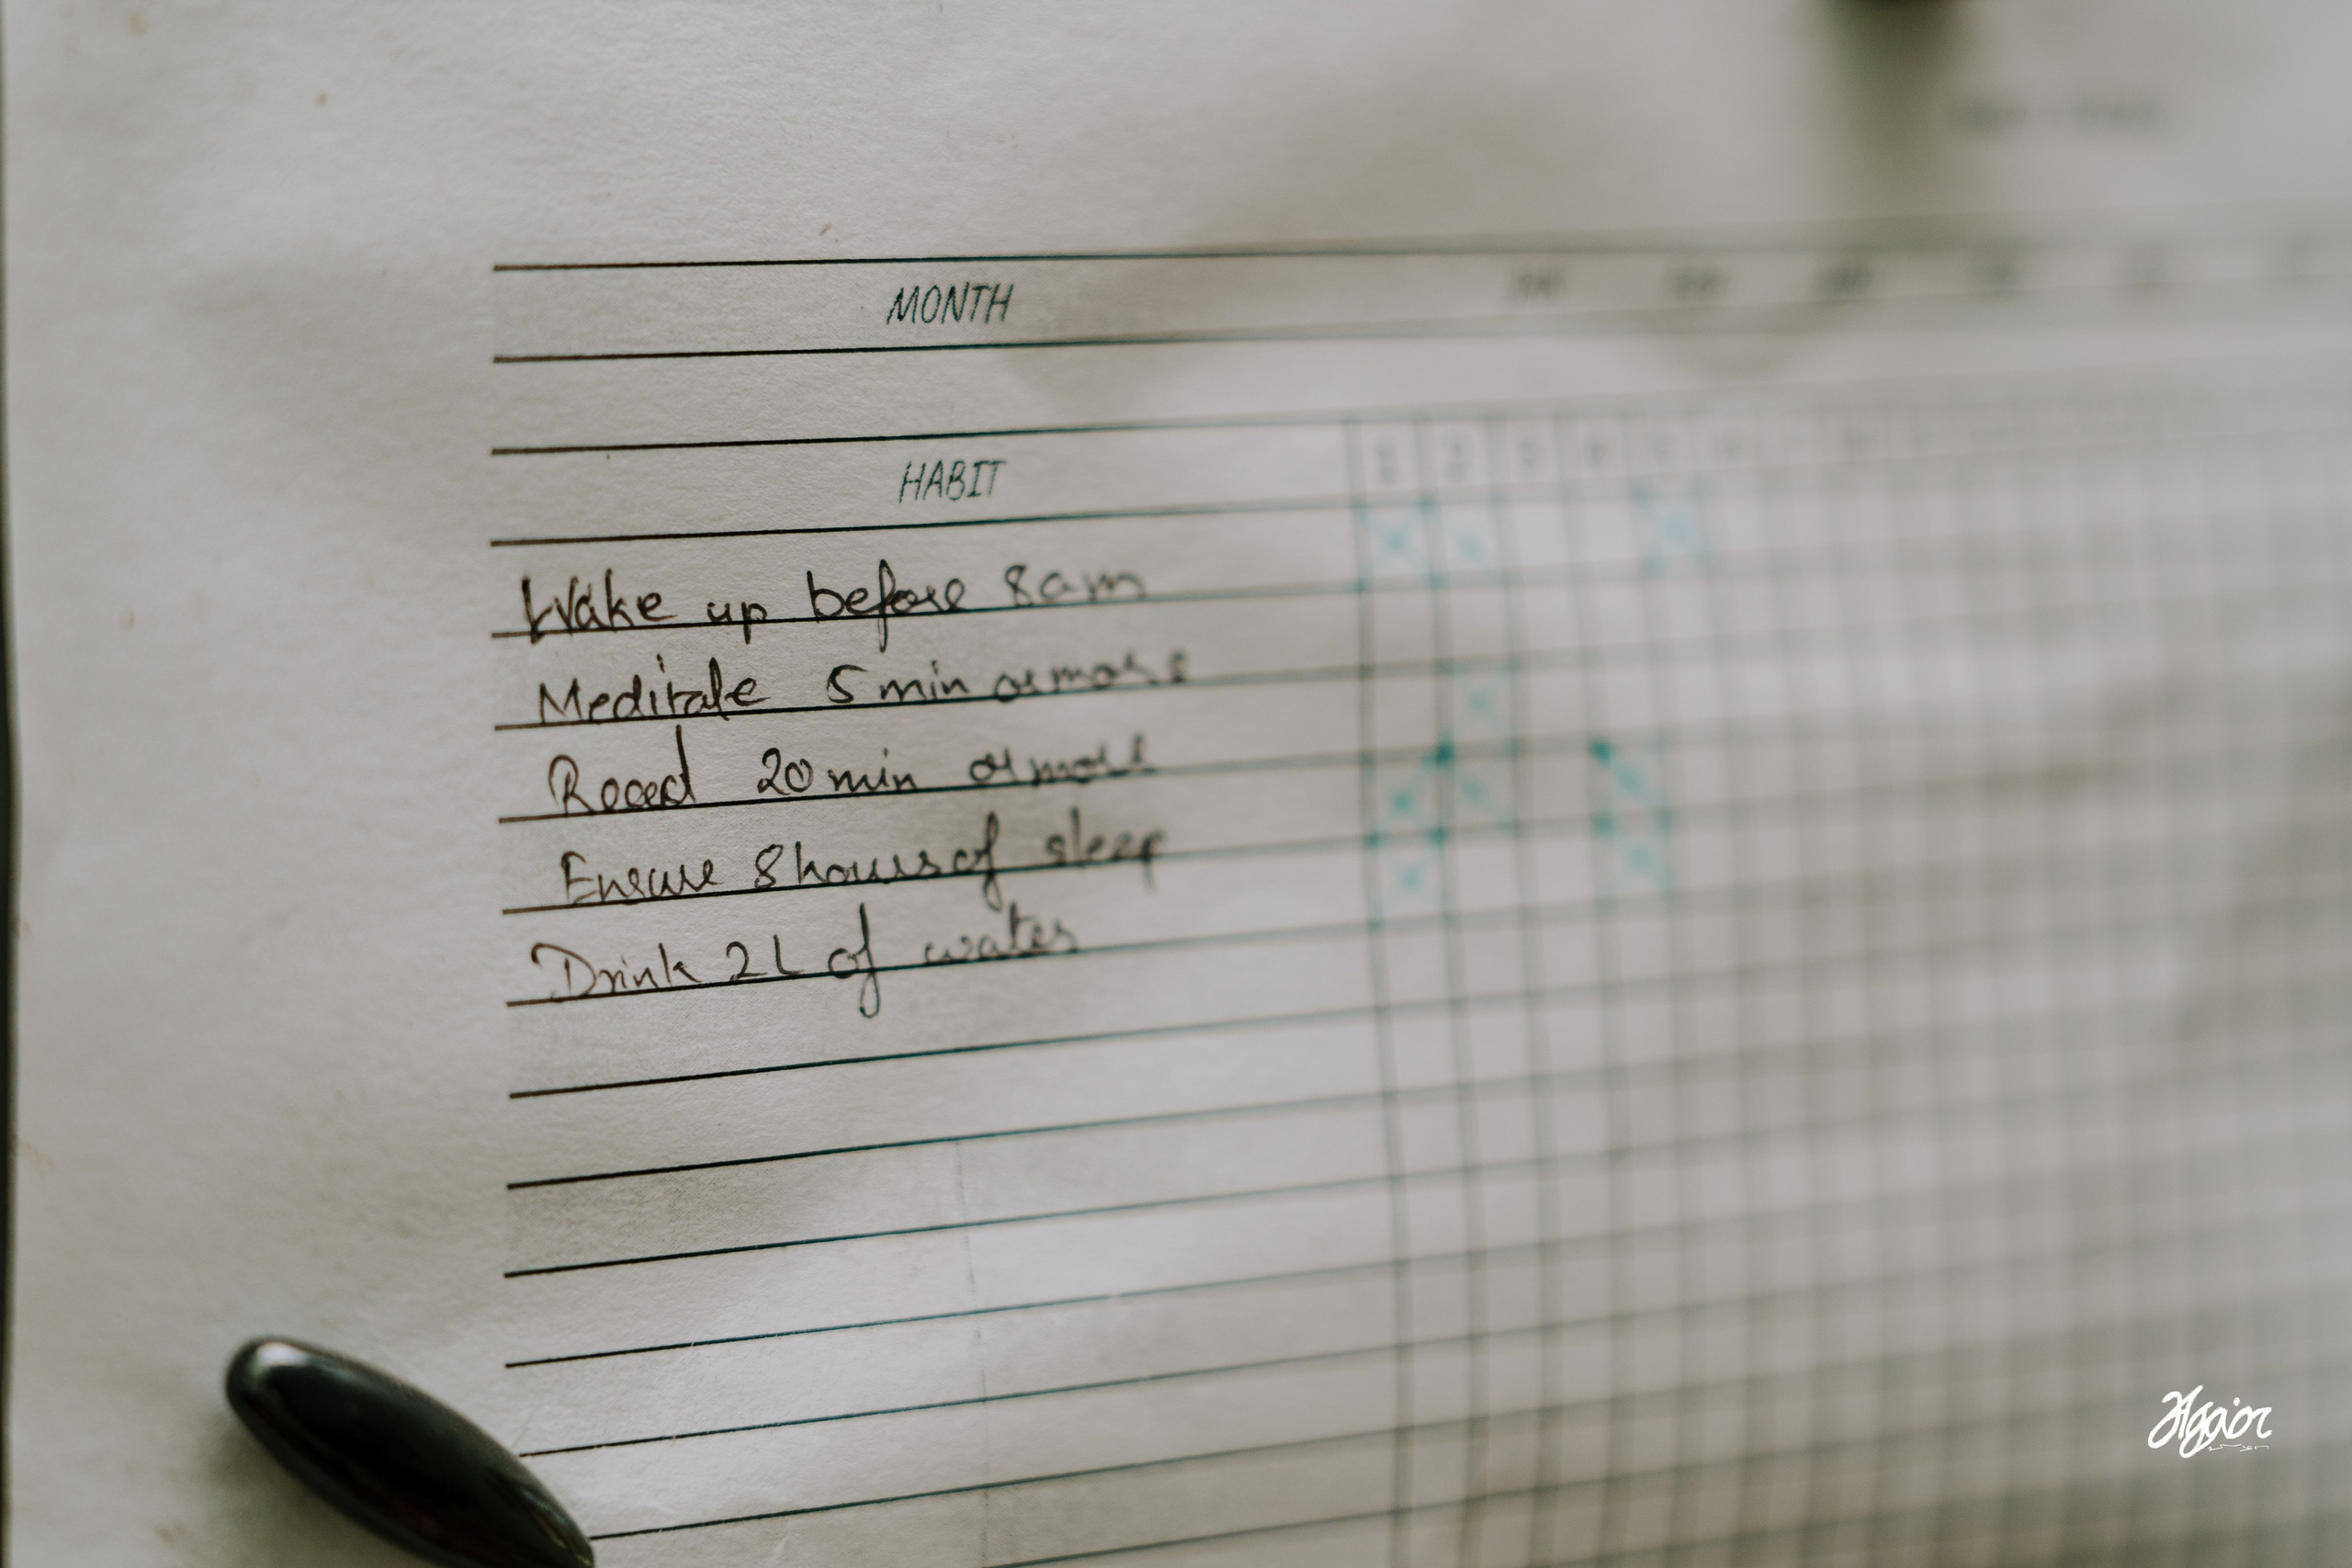 MONTH
HABIT 1 2
Wake up before 8am
Meditate 5 min or more
Read 20 min or more
Ensure 8 hours of sleep
Drink 2L of water